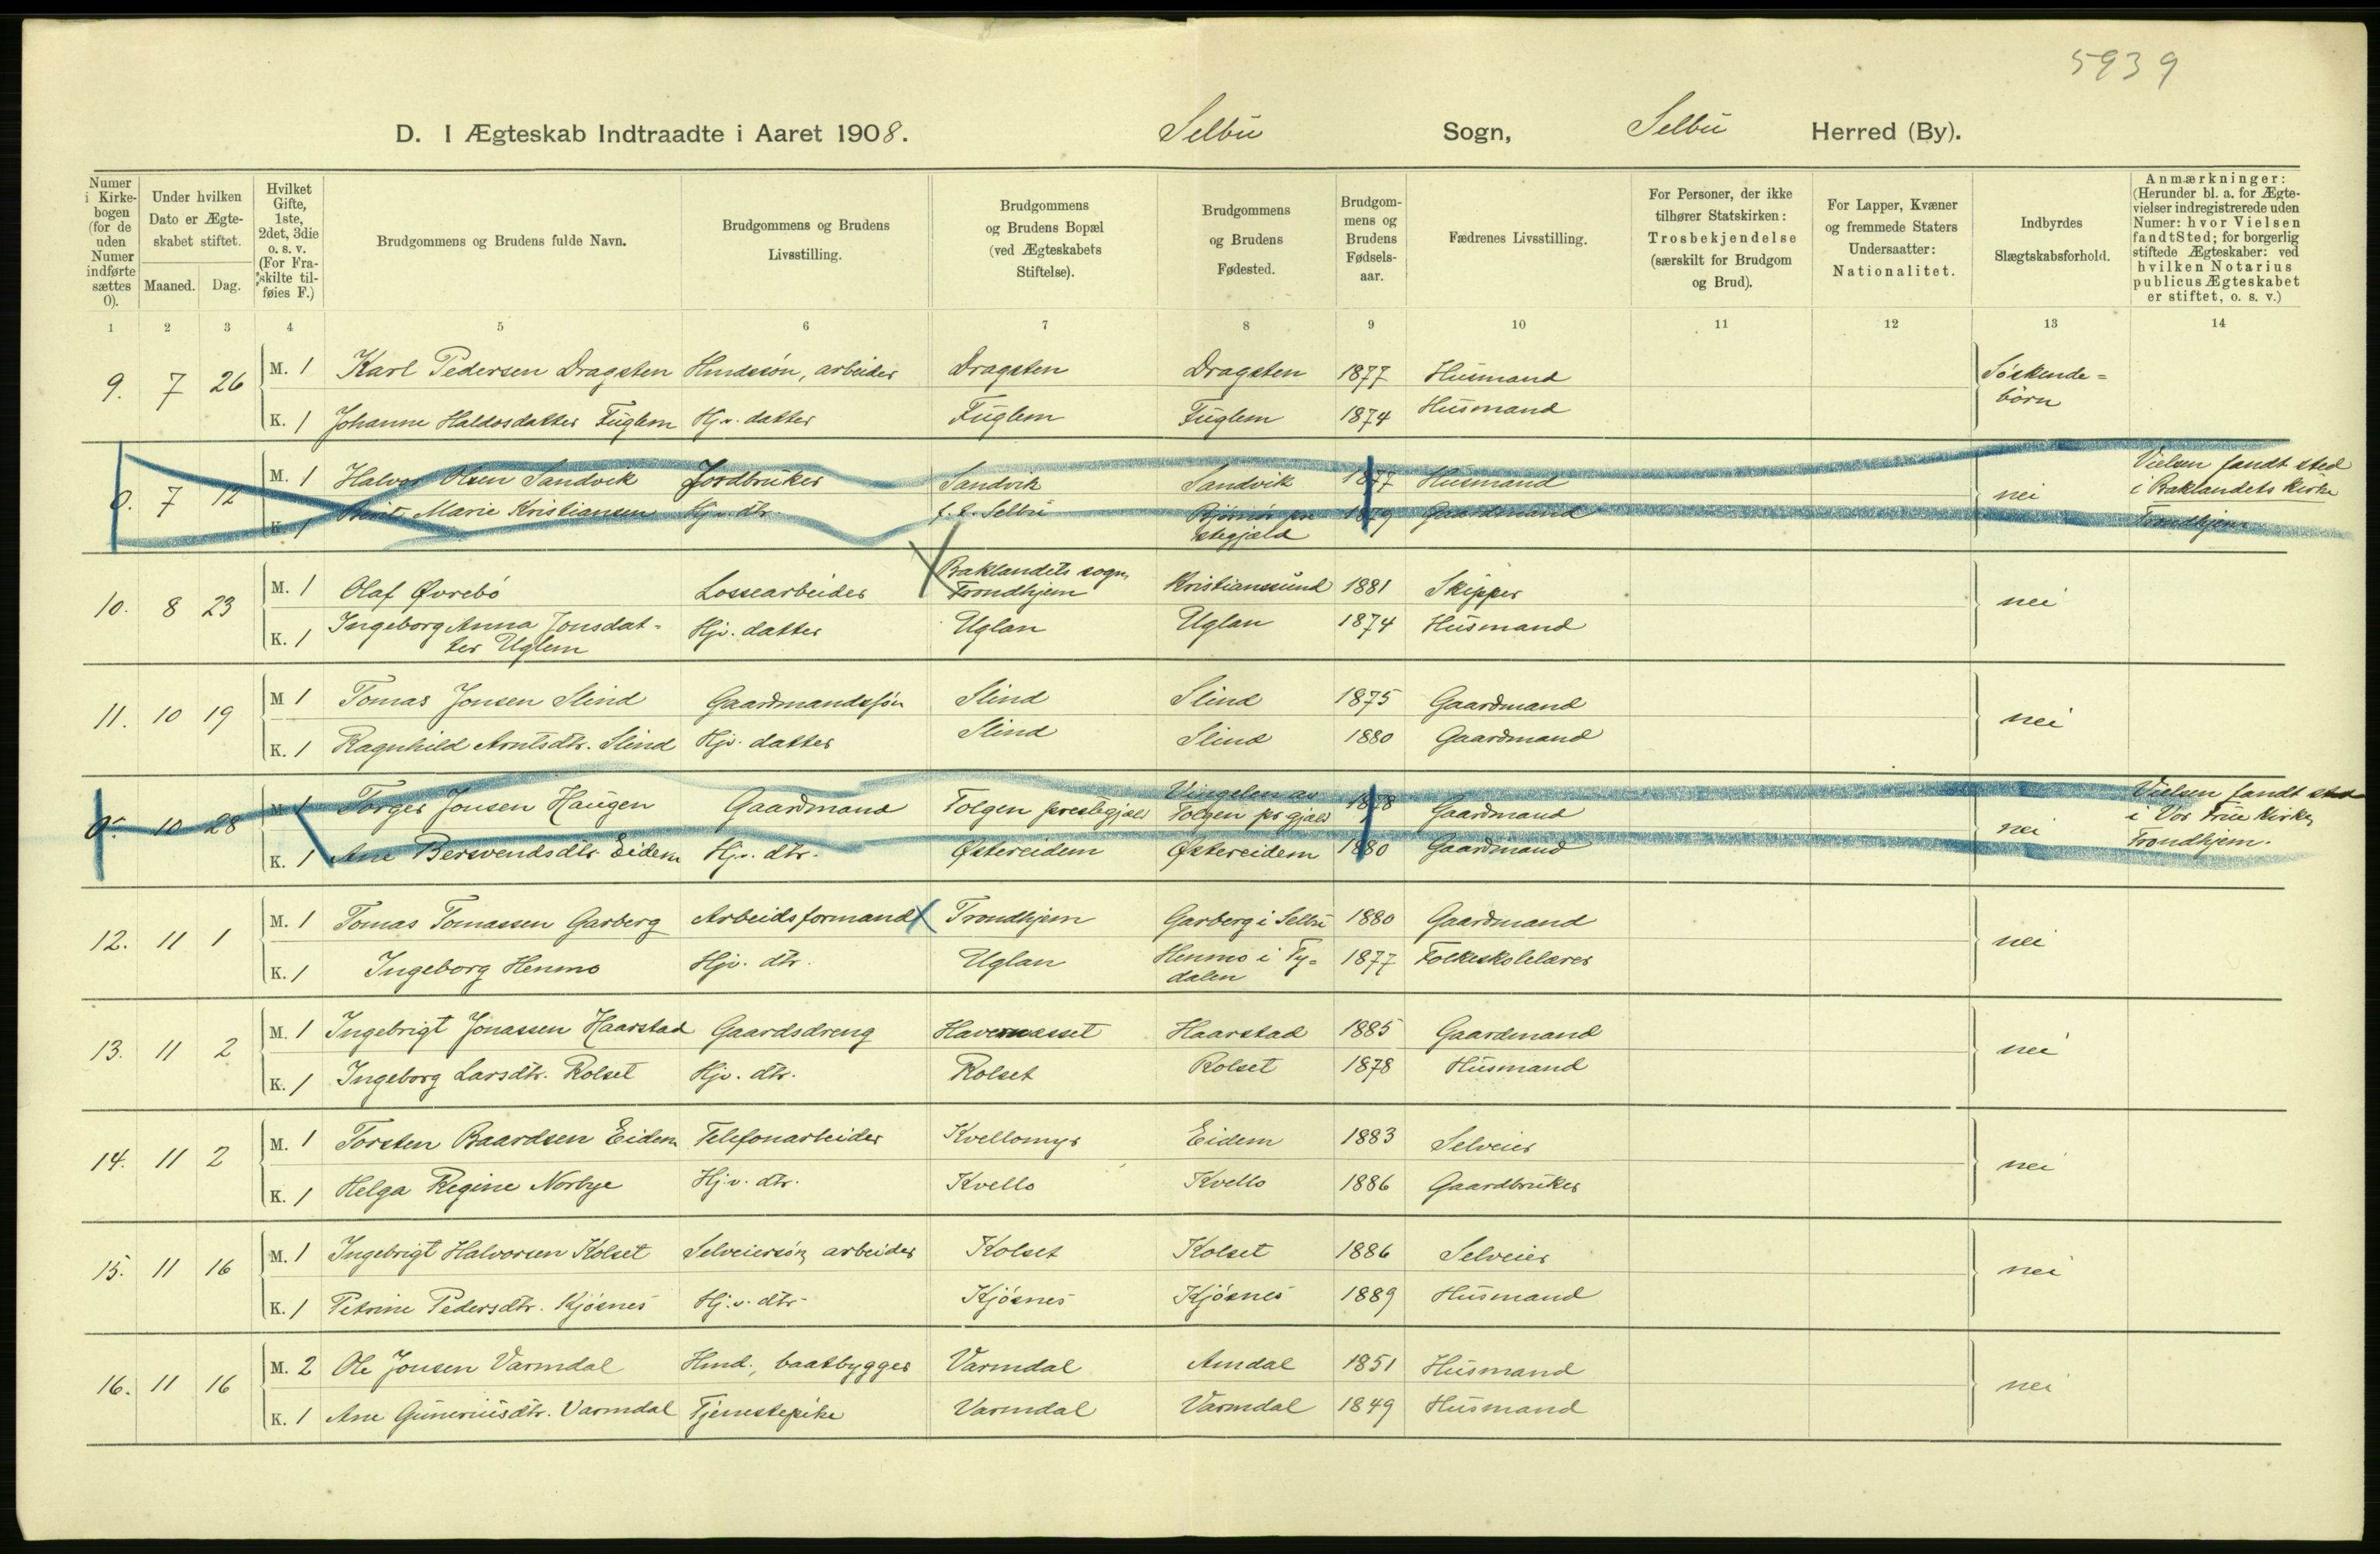 5939
D. I Ægteskab Indtraadte i Aaret 1908. Selbu Sogn, Selbu Herred (By).
Numer i Kirkebogen (for de uden Numer indførte sættes 0).
Under hvilken Dato er Ægteskabet stiftet.
Maaned. Dag.
Hvilket Gifte, 1ste, 2det, 3die o. s. v. (For Fraskilte tilføies F.)
Brudgommens og Brudens fulde Navn.
Brudgommens og Brudens Livsstilling.
Brudgommens og Brudens Bopæl (ved Ægteskabets Stiftelse).
Brudgommens og Brudens Fødested.
Brudgommens og Brudens Fødselsaar.
Fædrenes Livsstilling.
For Personer, der ikke tilhører Statskirken: Trosbekjendelse (særskilt for Brudgom og Brud).
For Lapper, Kvæner og fremmede Staters Undersaatter: Nationalitet.
Indbyrdes Slægtskabsforhold.
Anmærkninger: (Herunder bl. a. for Ægtevielser indregistrerede uden Numer: hvor Vielsen fandt Sted; for borgerlig stiftede Ægteskaber: ved hvilken Notarius publicus Ægteskabet er stiftet, o. s. v.)
1 2 3 4 5 6 7 8 9 10 11 12 13 14
9. 7 26 M. 1 Karl Pedersen Dragsten Hmdssøn, arbeider Dragsten Dragsten 1877 Husmand Søskende=
børn
K. 1 Johanne Haldosdatter Fuglem Hjv. datter Fuglem Fuglem 1874 Husmand
0. 7 12 M. 1 Halvor Olsen Sandvik Jordbruker Sandvik Sandvik 1877 Husmand nei Vielsen fandt sted
i Baklandets Kirke
Trondhjem
K. 1 Berit Marie Kristiansen Hjv. dtr. f. t. Selbu Bjørnør pre
stegjæld 1879 Gaardmand
10. 8 23 M. 1 Olaf Øvrebø Lossearbeider Baklandets sogn,
Trondhjem Kristianssund 1881 Skipper nei
K. 1 Ingeborg Anna Jonsdat-
ter Uglem Hjv. datter Uglan Uglan 1874 Husmand
11. 10 19 M 1 Tomas Jonsen Slind Gaardmandssøn Slind Slind 1875 Gaardmand nei
K. 1 Ragnhild Arntsdtr. Slind Hjv. datter Slind Slind 1880 Gaardmand
0. 10 28 M 1 Torger Jonsen Haugen Gaardmand Tolgen prestegjæld Vingelen av
Tolgen pr gjæld 1878 Gaardmand nei Vielsen fandt sted
i Vor Frue Kirke,
Trondhjem.
K. 1 Ane Bersvendsdtr. Eidem Hjv. dtr. Østereidem Østereidem 1880 Gaardmand
12. 11 1 M. 1 Tomas Tomassen Garberg Arbeidsformand Trondhjem Garberg i Selbu 1880 Gaardmand nei
K. 1 Ingeborg Henmo Hjv. dtr. Uglan Henmo i Ty=
dalen 1877 Folkeskolelærer
13. 11 2 M. 1 Ingebrigt Jonassen Haarstad Gaardsdreng Havernesset Haarstad 1885 Gaardmand nei
K. 1 Ingeborg Larsdtr. Rolset Hjv. dtr. Rolset Rolset 1878 Husmand
14. 11 2 M. 1 Torsten Baardsen Eidem Telefonarbeider Kvellomyr Eidem 1883 Selveier nei
K. 1 Helga Regine Norbye Hj.v. dtr. Kvello Kvello 1886 Gaardbruker
15. 11 16 M. 1 Ingebrigt Halvorsen Kolset Selveiersøn, arbeider Kolset Kolset 1886 Selveier nei
K. 1 Petrine Pedersdtr. Kjøsnes Hj.v. dtr. Kjøsnes Kjøsnes 1889 Husmand
16. 11 16 M. 2 Ole Jonsen Varmdal Hmd., baatbygger Varmdal Amdal 1851 Husmand nei
K. 1 Ane Guneriusdtr. Varmdal Tjenestepike Varmdal Varmdal 1849 Husmand